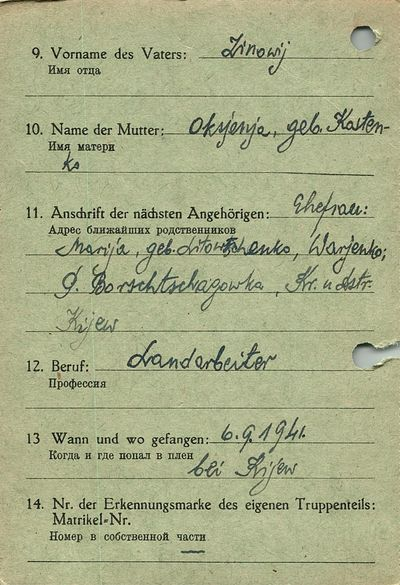 9. Vorname des Vaters: Zinowij
Имя отца
10. Name der Mutter: Oksjenja, geb. Kosten-
Имя матери
ko
11. Anschrift der nächsten Angehörigen: Ehefrau:
Адрес ближайших родственников
Marija, geb. Litowtschenko, Warjenko;
D. Borschtschagowka, Kr. u. dstr.
Kijew
12. Beruf: Landarbeiter
Профессия
13 Wann und wo gefangen: 6.9.1941.
Когда и где попал в плен
bei Kijew
14. Nr. der Erkennungsmarke des eigenen Truppenteils:
Matrikel-Nr.
Номер в собственной части
—